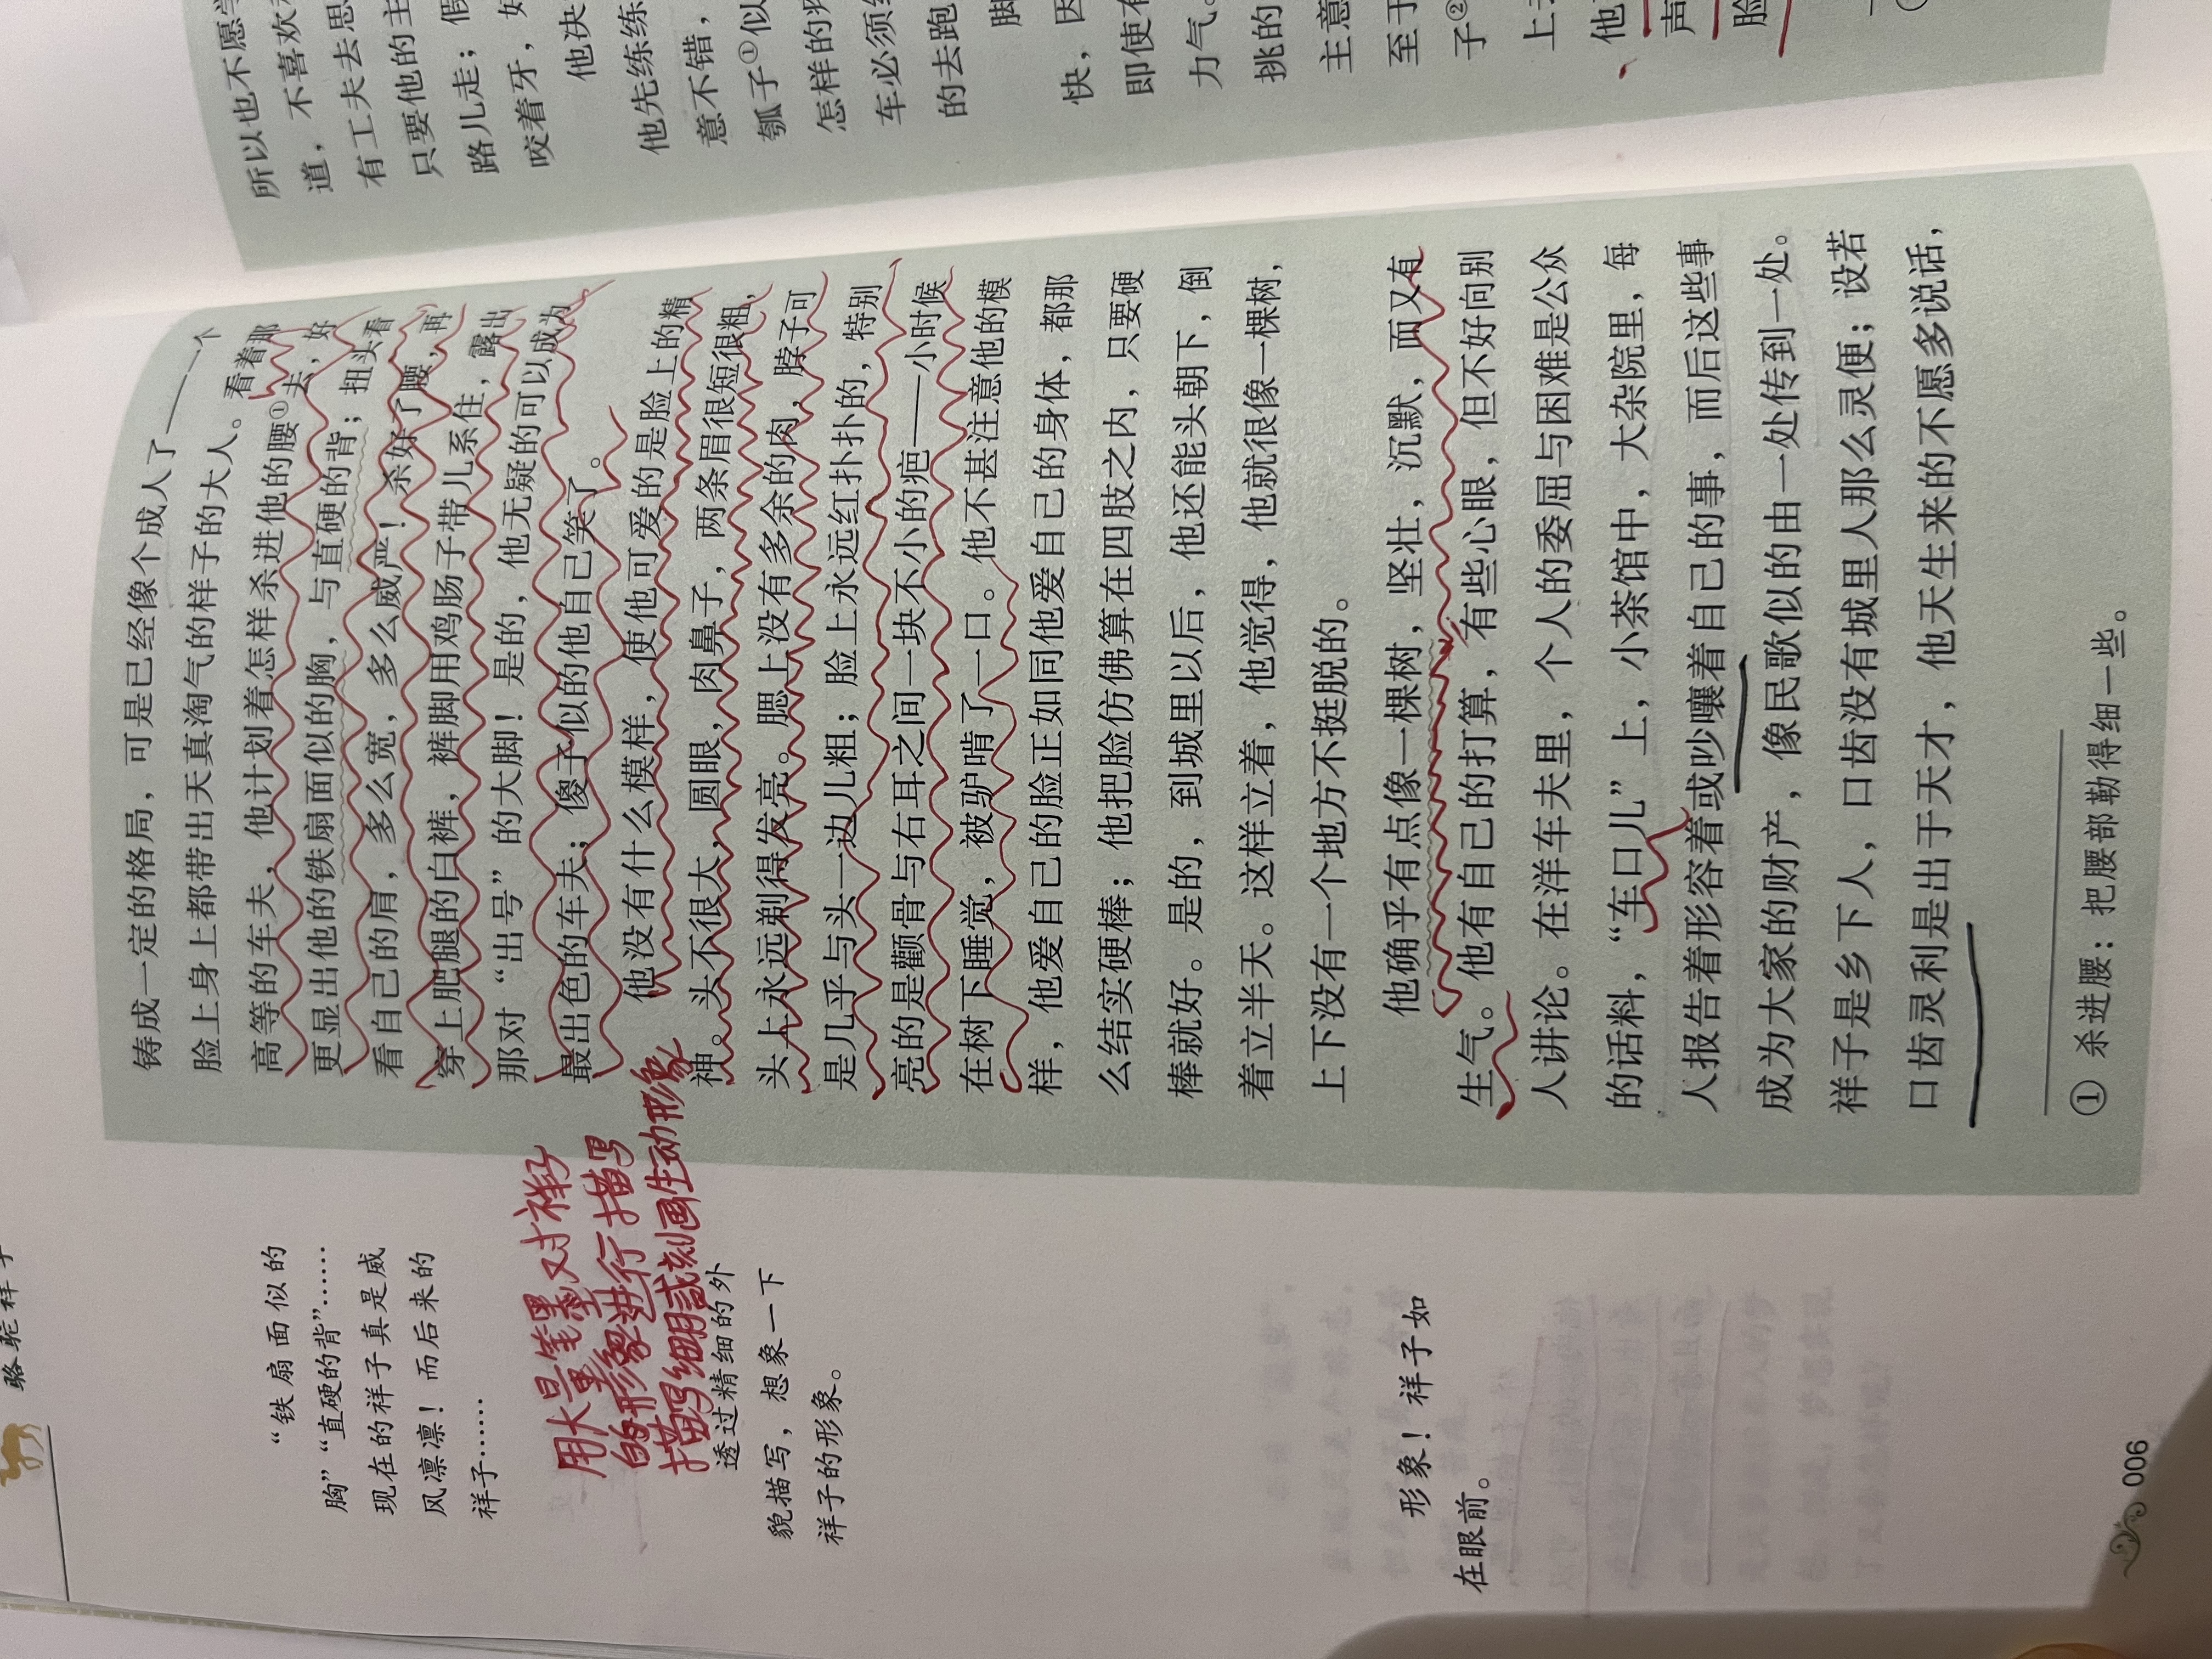 骆驼祥子
铸成一定的格局，可是已经像个成人了——一个
脸上身上都带出天真淘气的样子的大人。看着那
高等的车夫，他计划着怎样杀进他的腰①去，好
更显出他的铁扇面似的胸，与直硬的背；扭头看
看自己的肩，多么宽，多么威严！杀好了腰，再
穿上肥腿的白裤，裤脚用鸡肠子带儿系住，露出
那对“出号”的大脚！是的，他无疑的可以成为
最出色的车夫；傻子似的他自己笑了。
他没有什么模样，使他可爱的是脸上的精
神。头不很大，圆眼，肉鼻子，两条眉很短很粗，
头上永远剃得发亮。腮上没有多余的肉，脖子可
是几乎与头一边儿粗；脸上永远红扑扑的，特别
亮的是颧骨与右耳之间一块不小的疤——小时候
在树下睡觉，被驴啃了一口。他不甚注意他的模
样，他爱自己的脸正如同他爱自己的身体，都那
么结实硬棒；他把脸仿佛算在四肢之内，只要硬
棒就好。是的，到城里以后，他还能头朝下，倒
着立半天。这样立着，他觉得，他就很像一棵树，
上下没有一个地方不挺脱的。
他确乎有点像一棵树，坚壮，沉默，而又有
生气。他有自己的打算，有些心眼，但不好向别
人讲论。在洋车夫里，个人的委屈与困难是公众
的话料，“车口儿”上，小茶馆中，大杂院里，每
人报告着形容着或吵嚷着自己的事，而后这些事
成为大家的财产，像民歌似的由一处传到一处。
祥子是乡下人，口齿没有城里人那么灵便；设若
口齿灵利是出于天才，他天生来的不愿多说话，
① 杀进腰：把腰部勒得细一些。
“铁扇面似的
胸”“直硬的背”……
现在的祥子真是威
风凛凛！而后来的
祥子……
用大量笔墨对祥子
的形象进行描写
描写细腻刻画生动形象
透过精细的外
貌描写，想象一下
祥子的形象。
形象！祥子如
在眼前。
006
所以也不愿学
道，不喜欢
有工夫去思
只要他的主
路儿走；假
咬着牙，好
他决
他先练练
意不错，
瓠子①似
怎样的
车必须
的去跑
脚
快，因
即使有
力气。
挑的
主意
至于
子②
上
他
声
脸